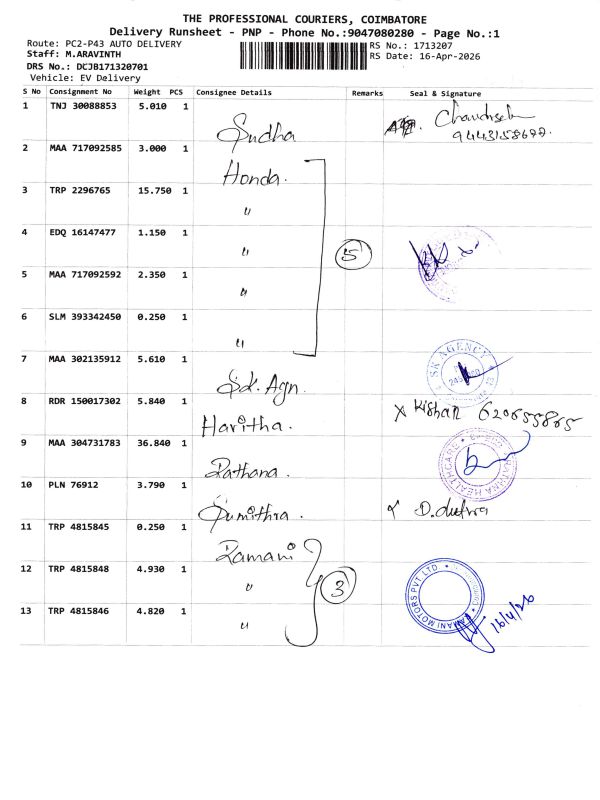 THE PROFESSIONAL COURIERS, COIMBATORE
Delivery Runsheet - PNP - Phone No.:9047080280 - Page No.:1
Route: PC2-P43 AUTO DELIVERY RS No.: 1713207
Staff: M.ARAVINTH RS Date: 16-Apr-2026
DRS No.: DCJB171320701
Vehicle: EV Delivery
S No Consignment No Weight PCS Consignee Details Remarks Seal & Signature
1 TNJ 30088853 5.010 1 Sudha
2 MAA 717092585 3.000 1 Honda.
3 TRP 2296765 15.750 1 "
4 EDQ 16147477 1.150 1 " 5
5 MAA 717092592 2.350 1 "
6 SLM 393342450 0.250 1 "
7 MAA 302135912 5.610 1 Sk. Agn. SK AGENCY
8 RDR 150017302 5.840 1 Haritha. X Kishan
9 MAA 304731783 36.840 1 Rathana. HEALTHCARE
10 PLN 76912 3.790 1 Sumithra.
11 TRP 4815845 0.250 1 Ramani
12 TRP 4815848 4.930 1 " 3 RAMANI MOTORS PVT LTD
13 TRP 4815846 4.820 1 " 16/4/26